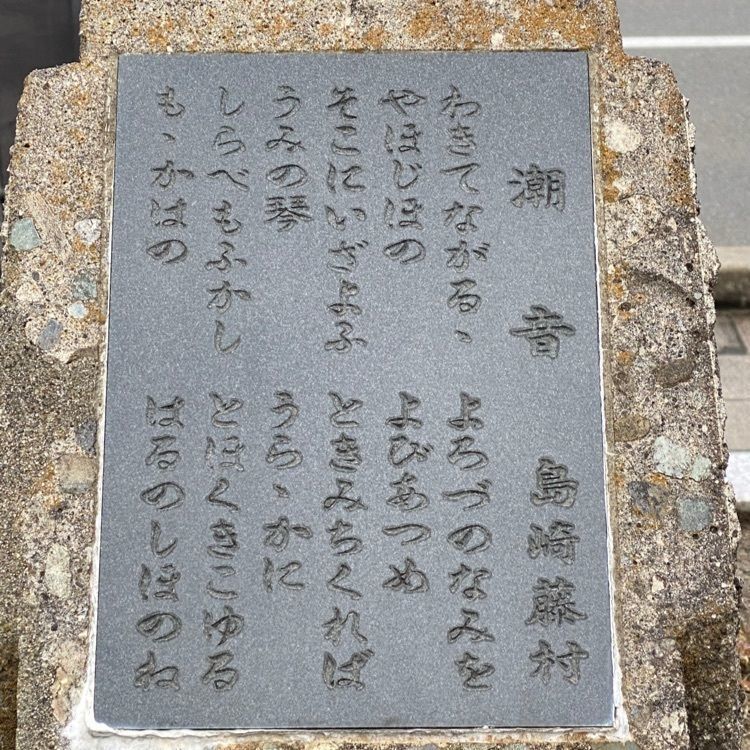 潮音
島崎藤村
わきてながるゝ
やほじほの
そこにいざよふ
うみの琴
しらべもふかし
もゝかはの
よろづのなみを
よびあつめ
ときみちくれば
うらゝかに
とほくきこゆる
はるのしほのね